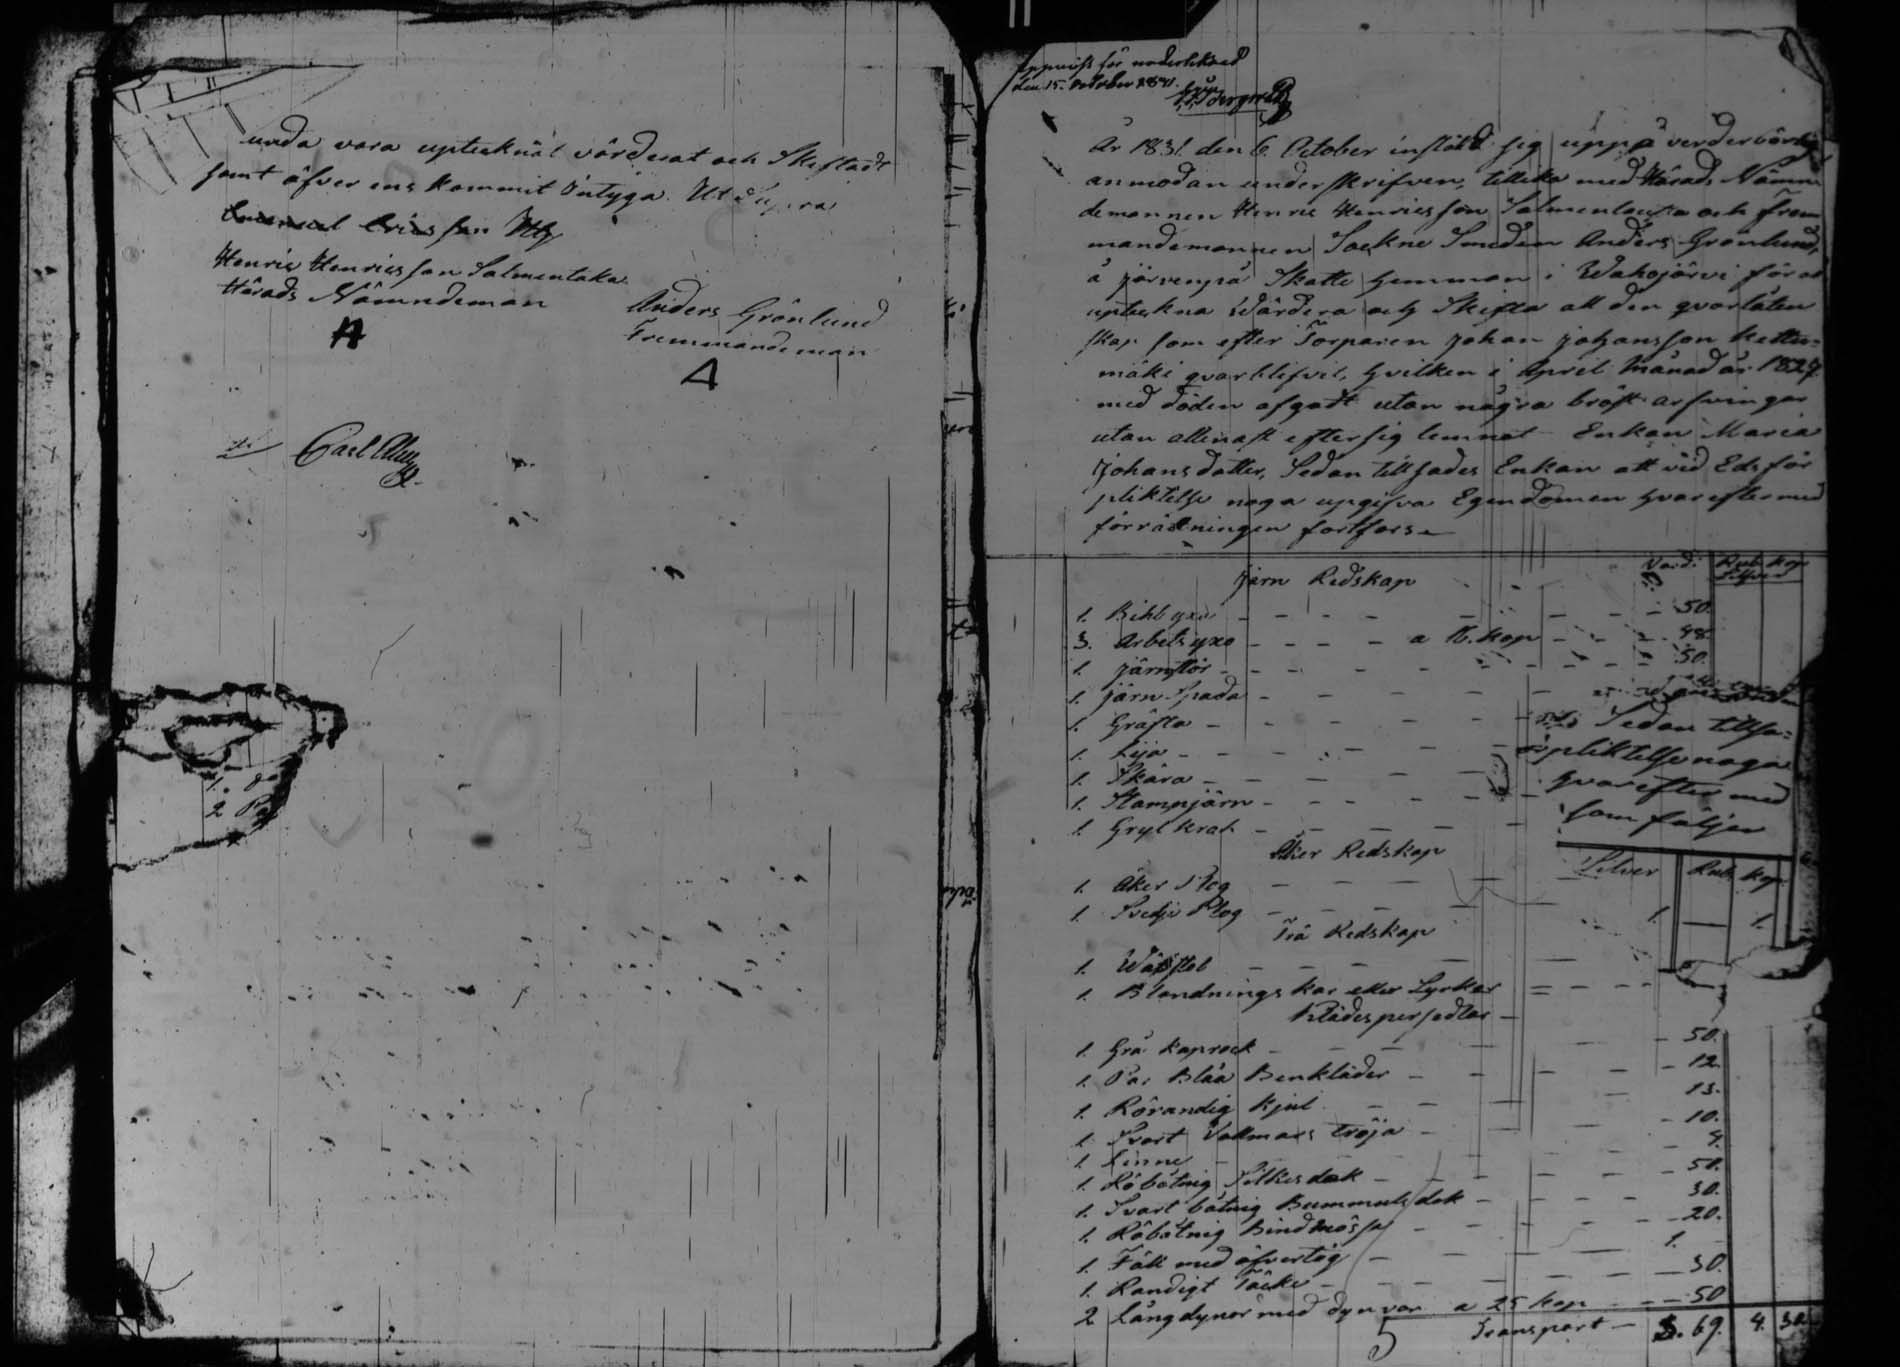 unda vara uptecknat värderat och Skiftadt
samt öfver ens kommit Intyga. Ut Supra
Ericsson
Henric Henricsson Salmentaka
Härads Nämndeman
Anders Grönlund
Fremmandeman
A
Carl
1.
2
uppvist för underteknad
den 15. October 1831.
År 1831 den 6. October instäld sig uppå vederbörlig
anmodan underskrifven, tillika med Härads Nämn
demannen Henric Henricsson Salmentaka och Frem
mandemannen Sockne Smeden Anders Grönlund,
å Järvenpä Skatte hemman i Wahojärvi för at
uptekna Wärdera och Skifta all den qvarlåten
skap som efter Torparen Johan Johansson Kettu=
mäki qvarblifvit, hvilken i April Månad år 1827
med döden afgadt utan några bröst arfvingar
utan allenast efter sig lemnat Enkan Maria
Johansdotter, Sedan tillsades Enkan att vid Eds för
pliktelse noga upgifva Egendomen hvarefter med
förrättningen fortfors
Järn Redskap
Rub. Kop
Silfver
1. Bihl yxa 50.
3. Arbets yxo a 16. kop 48.
1. Järnstör 50.
1. Järn Spada
1. Gräfta
1. Lija
1. Skära
1. Stampjärn
1. Gryt krok
Sedan tillsa=
pliktelse noga
hvarefter med
som följer
Silver Rub. Kop.
1. 1.
Åker Redskap
1. Åker Plog
1. Svedje Plog
Trä Redskap
1. Wäfstol
1. Blandnings kar eller Lyrkar
Klädespersedlar
1. Grå kaprock 50.
1. Par Blåa Benkläder 12.
1. Rörandig Kjol 13.
1. Svart Vallmars tröja 10.
1. Linne 4.
1. Röbotnig Silkesdok 50.
1. Svart botnig Bummuls dok 30.
1. Röbotnig Bindmössa 20.
1. Fäll med öfvertög 1.
1. Randigt Täcke 30.
2 Långdynor med dynvar a 25 kop 50
Transport 69. 4. 32
5